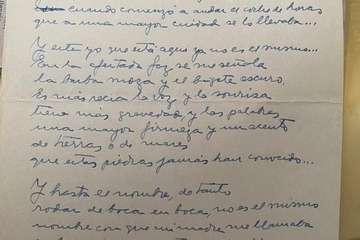 cuando comenzó a rodar el coche de horas
que a una mayor ciudad se lo llevaba...
Y este yo que está aquí ya no es el mismo...
En la afeitada faz se me señala
la barba moza y el bigote oscuro,
Es más recia la voz, y la sonrisa
tiene más gravedad, y las palabras
una mayor firmeza y un acento
de tierras o de mares
que estas piedras jamás han conocido...
Y hasta el nombre, de tanto
rodar de boca en boca, no es el mismo
nombre con que mi madre me llamaba